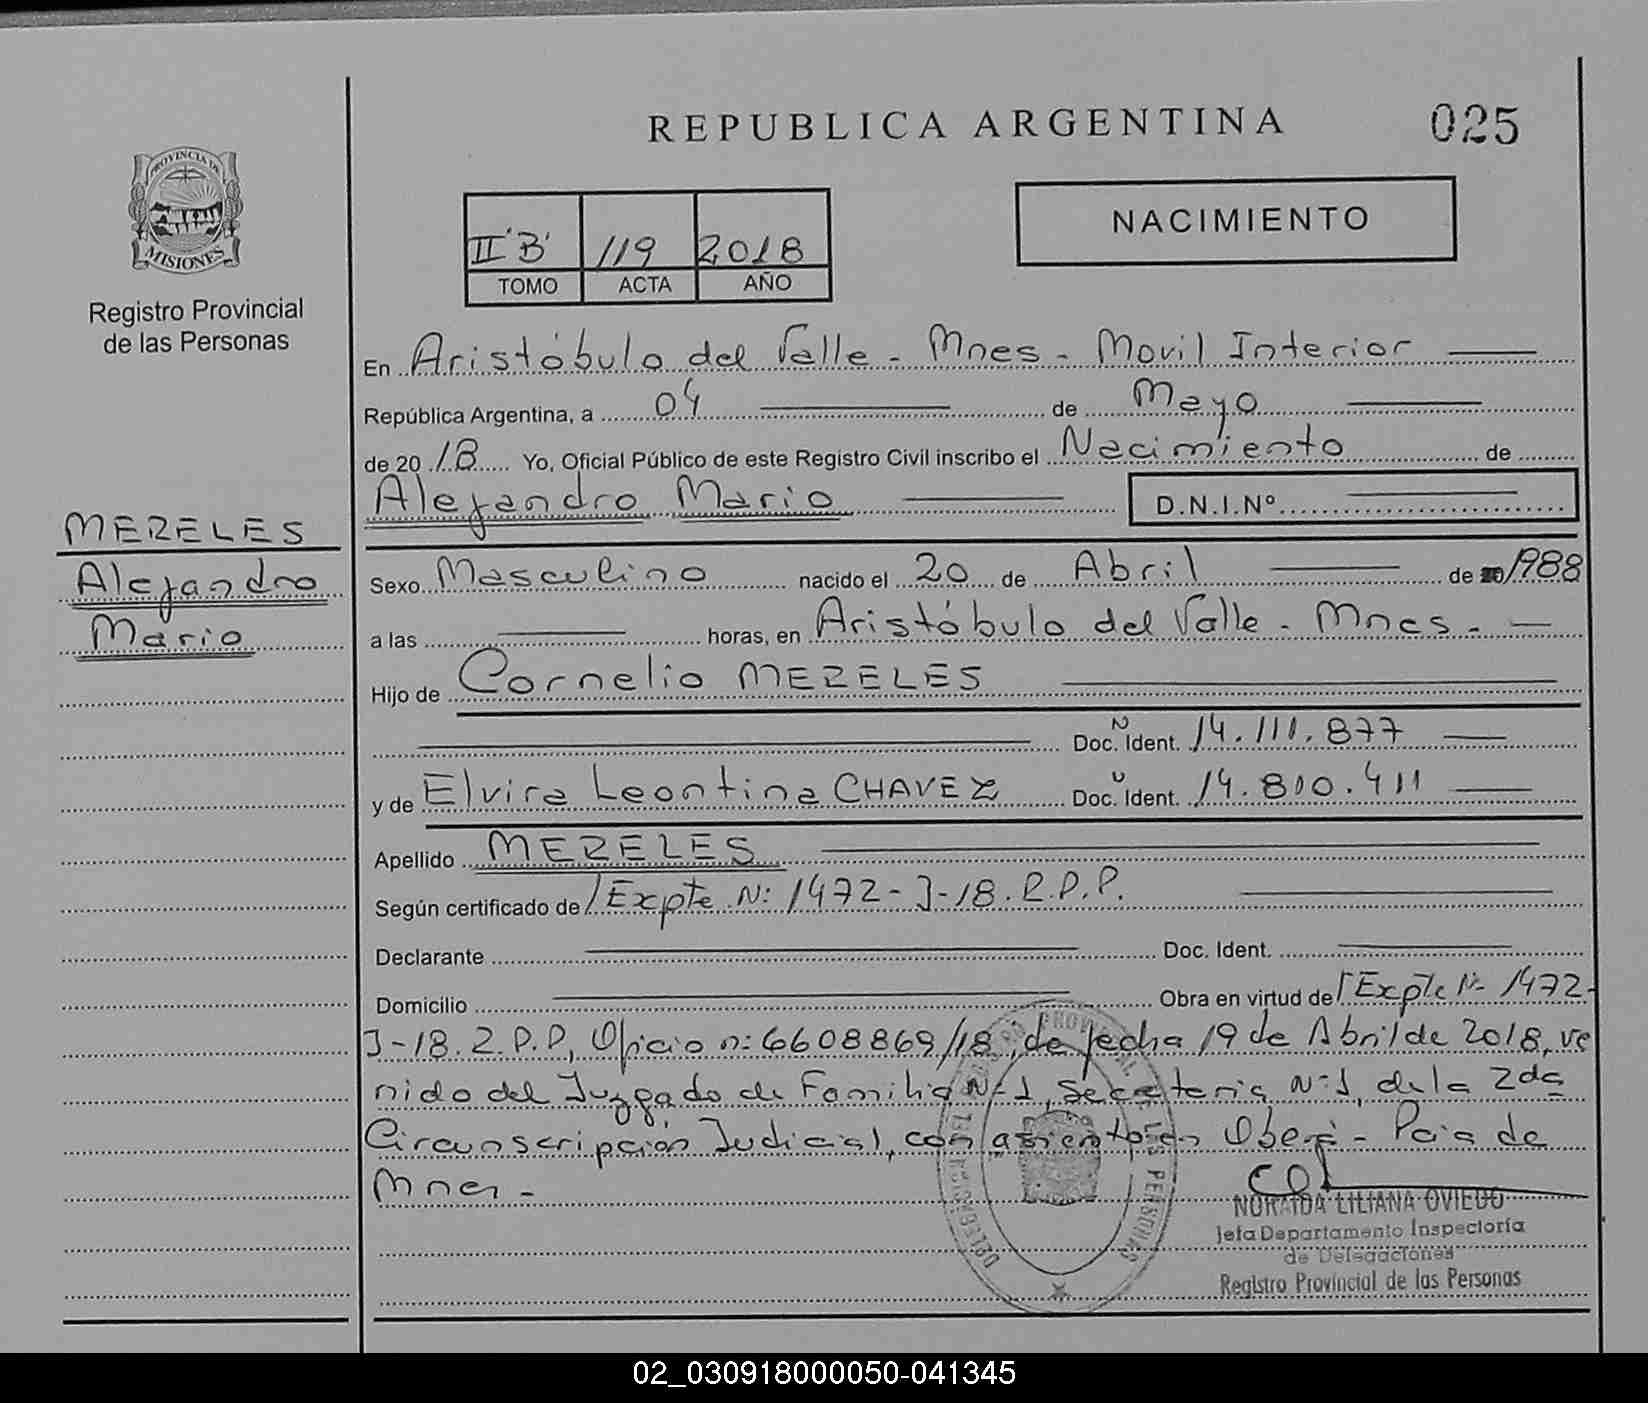 REPUBLICA ARGENTINA
025
PROVINCIA DE
MISIONES
Registro Provincial
de las Personas
II "B" 119 2018
TOMO ACTA AÑO
NACIMIENTO
En Aristóbulo del Valle - Mnes - Movil Interior
República Argentina, a 04 de Mayo
de 2018 Yo, Oficial Público de este Registro Civil inscribo el Nacimiento de
Alejandro Mario D.N.I.Nº
MERELES
Alejandro
Mario
Sexo Masculino nacido el 20 de Abril de 1988
a las horas, en Aristóbulo del Valle - Mnes -
Hijo de Cornelio MERELES
Doc. Ident. 14.111.877
y de Elvira Leontina CHAVEZ Doc. Ident. 14.800.411
Apellido MERELES
Según certificado de / Expte N: 1472-J-18.R.P.P.
Declarante Doc. Ident.
Domicilio Obra en virtud de Expte Nº 1472-
J-18.R.P.P, Oficio n: 6608869/18, de fecha 19 de Abril de 2018, ve
nido del Juzgado de Familia Nº 1, Secretaria Nº 1, de la 2da
Circunscripción Judicial, con asiento en Oberá - Pcia de
Mnes -
NORAIDA LILIANA OVIEDO
Jefa Departamento Inspectoría
de Delegaciones
Registro Provincial de las Personas
02_030918000050-041345